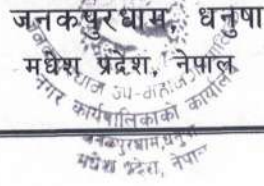 जनकपुरधाम, धनुषा
मधेश प्रदेश, नेपाल
उप-महा
नगर कार्यपालिकाको कार्यालय
जनकपुरधाम, धनुषा
मधेश प्रदेश, नेपाल